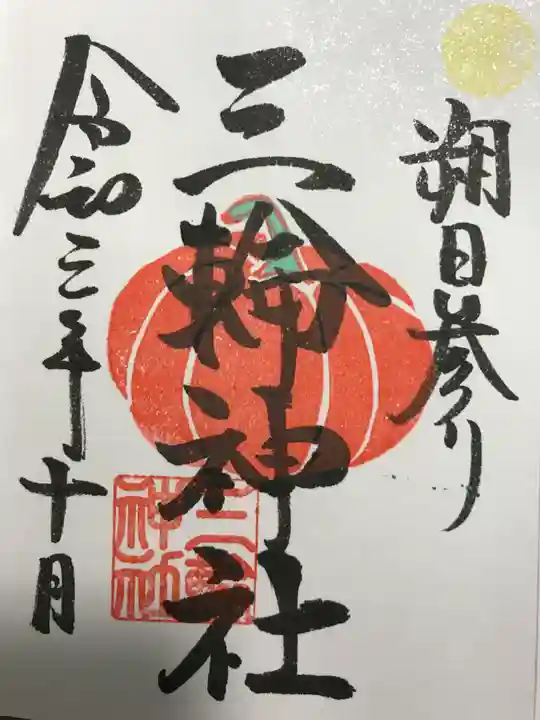 朔日参り
三輪神社
令和三年十月
三輪神社